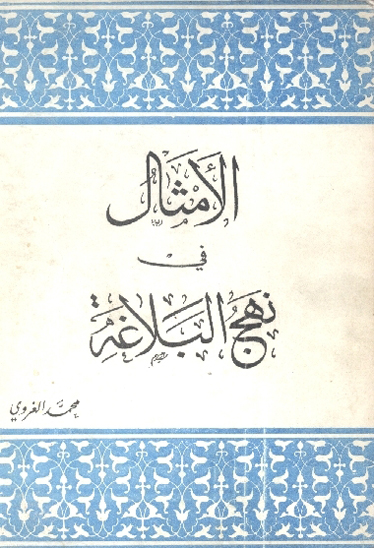 الأمثال
في
نهج البلاغة
محمد الغروي